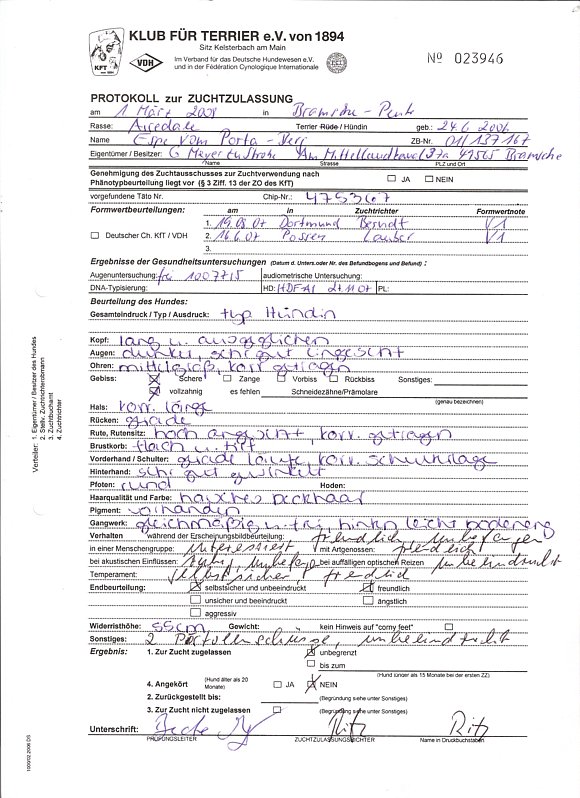 KLUB FÜR TERRIER e.V. von 1894
Sitz Kelsterbach am Main
Im Verband für das Deutsche Hundewesen e.V.
und in der Fédération Cynologique Internationale
KFT
VDH
Nº 023946
PROTOKOLL zur ZUCHTZULASSUNG
am 1 März 2008 in Bramsche - Pente
Rasse: Airedale Terrier Rüde / Hündin geb.: 24.6.2006
Name Espe vom Porta - Berg ZB-Nr. 011/137167
Eigentümer / Besitzer: G Meyer Am Mittellandkanal 37a 49565 Bramsche
Name Strasse PLZ und Ort
Genehmigung des Zuchtausschusses zur Zuchtverwendung nach
Phänotypbeurteilung liegt vor (§ 3 Ziff. 13 der ZO des KfT) JA NEIN
vorgefundene Täto Nr. Chip-Nr.: 475367
Formwertbeurteilungen: am in Zuchtrichter Formwertnote
1. 19.08.07 Dortmund Berndt V1
Deutscher Ch. KfT / VDH 2. 16.6.07 V1
3.
Ergebnisse der Gesundheitsuntersuchungen (Datum d. Unters. oder Nr. des Befundbogens und Befund) :
Augenuntersuchung: frei 1007715 audiometrische Untersuchung:
DNA-Typisierung: HD: HDF-A1 21.11.07 PL:
Beurteilung des Hundes:
Gesamteindruck / Typ / Ausdruck: typ Hündin
Kopf: lang u. ausgeglichen
Augen: dunkel, sehr gut eingesetzt
Ohren: mittelgroß, korr. getragen
Gebiss: Schere Zange Vorbiss Rückbiss Sonstiges:
vollzahnig es fehlen Schneidezähne/Prämolare
(genau bezeichnen)
Hals: korr. länge
Rücken: gerade
Rute, Rutensitz: hoch angesetzt, korr. getragen
Brustkorb: flach u. tief
Vorderhand / Schulter: gerade Läufe, korr. Schulterlage
Hinterhand: sehr gut gewinkelt
Pfoten: rund Hoden:
Haarqualität und Farbe: harsches Deckhaar
Pigment: vorhanden
Gangwerk: gleichmäßig u. frei, hinten leicht bodeneng
Verhalten während der Erscheinungsbildbeurteilung: freundlich, unbefangen
in einer Menschengruppe: interessiert mit Artgenossen: friedlich
bei akustischen Einflüssen: unbefangen bei auffälligen optischen Reizen unbeeindruckt
Temperament: selbstsicher friedlich
Endbeurteilung: selbstsicher und unbeeindruckt freundlich
unsicher und beeindruckt ängstlich
aggressiv
Widerristhöhe: 55cm Gewicht: kein Hinweis auf "corny feet"
Sonstiges: 2 Pistolenschüsse, unbeeindruckt
Ergebnis: 1. Zur Zucht zugelassen unbegrenzt
bis zum
(Hund jünger als 15 Monate bei der ersten ZZ)
4. Angekört (Hund älter als 20 Monate) JA NEIN
2. Zurückgestellt bis: (Begründung siehe unter Sonstiges)
3. Zur Zucht nicht zugelassen (Begründung siehe unter Sonstiges)
Unterschrift: Ritz Ritz
PRÜFUNGSLEITER ZUCHTZULASSUNGSRICHTER Name in Druckbuchstaben
Verteiler: 1. Eigentümer / Besitzer des Hundes
2. Stellv. Zuchtrichterobmann
3. Zuchtbuchamt
4. Zuchtrichter